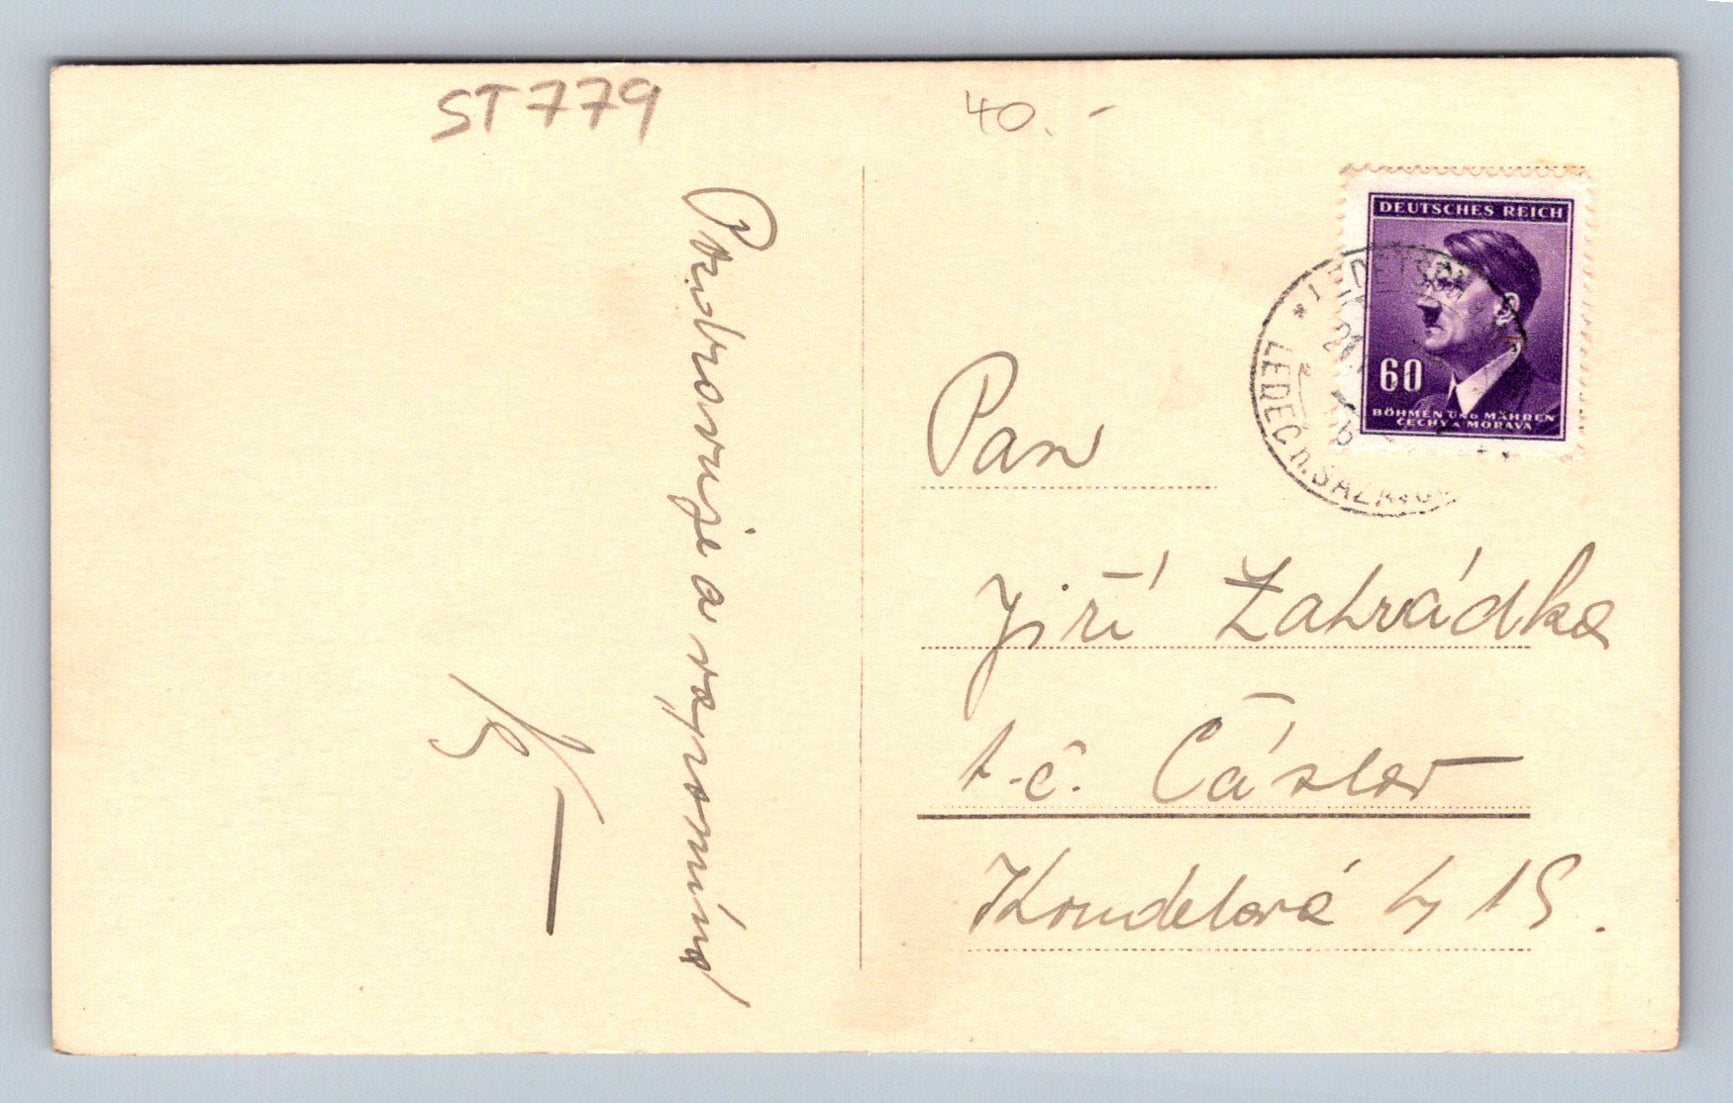 ST 779
40.-
Pozdravuje a vzpomíná
DEUTSCHES REICH
60
BÖHMEN UND MÄHREN
ČECHY A MORAVA
LEDETSCH
LEDEČ n. SÁZAVOU
Pan
Jiří Zahrádka
t.č. Čáslav
15.